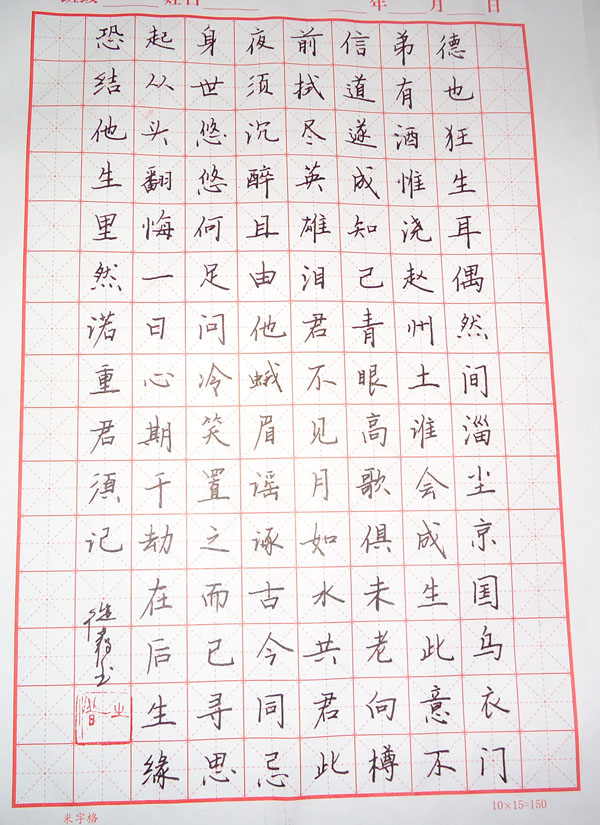 年 月 日
德也狂生耳偶然间淄尘京国乌衣门
弟有酒惟浇赵州土谁会成生此意不
信道遂成知己青眼高歌俱未老向樽
前拭尽英雄泪君不见月如水共君此
夜须沉醉且由他蛾眉谣诼古今同忌
身世悠悠何足问冷笑置之而已寻思
起从头翻悔一日心期千劫在后生缘
恐结他生里然诺重君须记
米字格
10×15=150